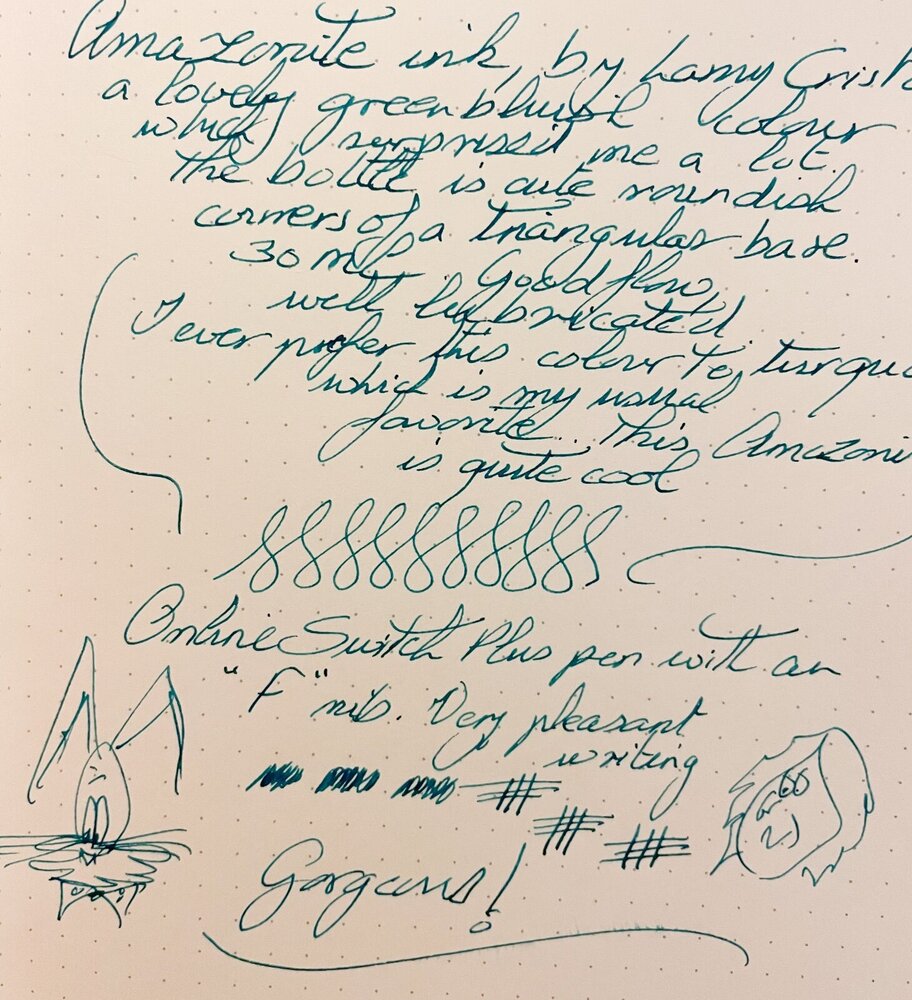 Amazonite ink, by Lamy Crist
a lovely green bluish colour
which surprised me a lot.
The bottle is cute roundish
corners of a triangular base.
30 ml. Good flow,
well lubricated
I ever prefer this colour to turquo
which is my usual
favorite. This Amazoni
is quite cool
Online Switch Plus pen with an
"F" nib. Very pleasant
writing
Gorgeous!